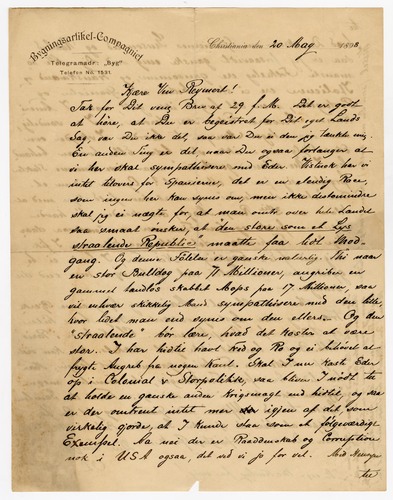 Bygningsartikel-Compagniet
Telegramadr.: „Byg"
Telefon No. 1531.
Christiania den 20 Maj 1898
Kjære Ven Reymert!
Tak for Dit venlg Brev af 29 f. M. Det er godt
at høre, at Du er begeistret for Dit nyet Lands
Sag, var Du ikke det, saa var Du ei den jeg tænkte mig.
En anden Ting er det naar Du ogsaa forlanger at
vi her skal sympathisere med Eder. Vistnok har vi
intet tilovers for Spanierne, det er en elendig Race,
som ingen her kan synes om, men ikke destomindre
skal jeg ei nægte for, at man rundt over hele Landet
saa smaat ønsker, at den store som et Lys
straalende Republic maatte faa lidt Mod-
gang. Og denne Følelse er ganske naturlig. Thi naar
en stor Bulldog paa 71 Millioner, angriber en
gammel tandløs skabbet Mops paa 17 Millioner, saa
vil enhver skikkelig Mand sympathisere med den lille,
hvor lidet man end synes om den ellers. Og den
"straalende" bør lære, hvad det koster at være
stor. I har hidtil havt Fred og Ro og ei behøvet at
frygte Angreb fra nogen Kant. Skal I nu kaste Eder
op i Colonial & Storpolitikk, saa bliver I nødt til
at holde en ganske anden Krigsmagt end hidtil, og saa
er der omtrent intet mer igjen af det som
virkelig gjorde, at I kunde staa som et følgværdigt
Exempel. Aa nei der er Raaddenskab og Corruption
nok i USA ogsaa, det ved vi jo for vel. Med Hensyn
til